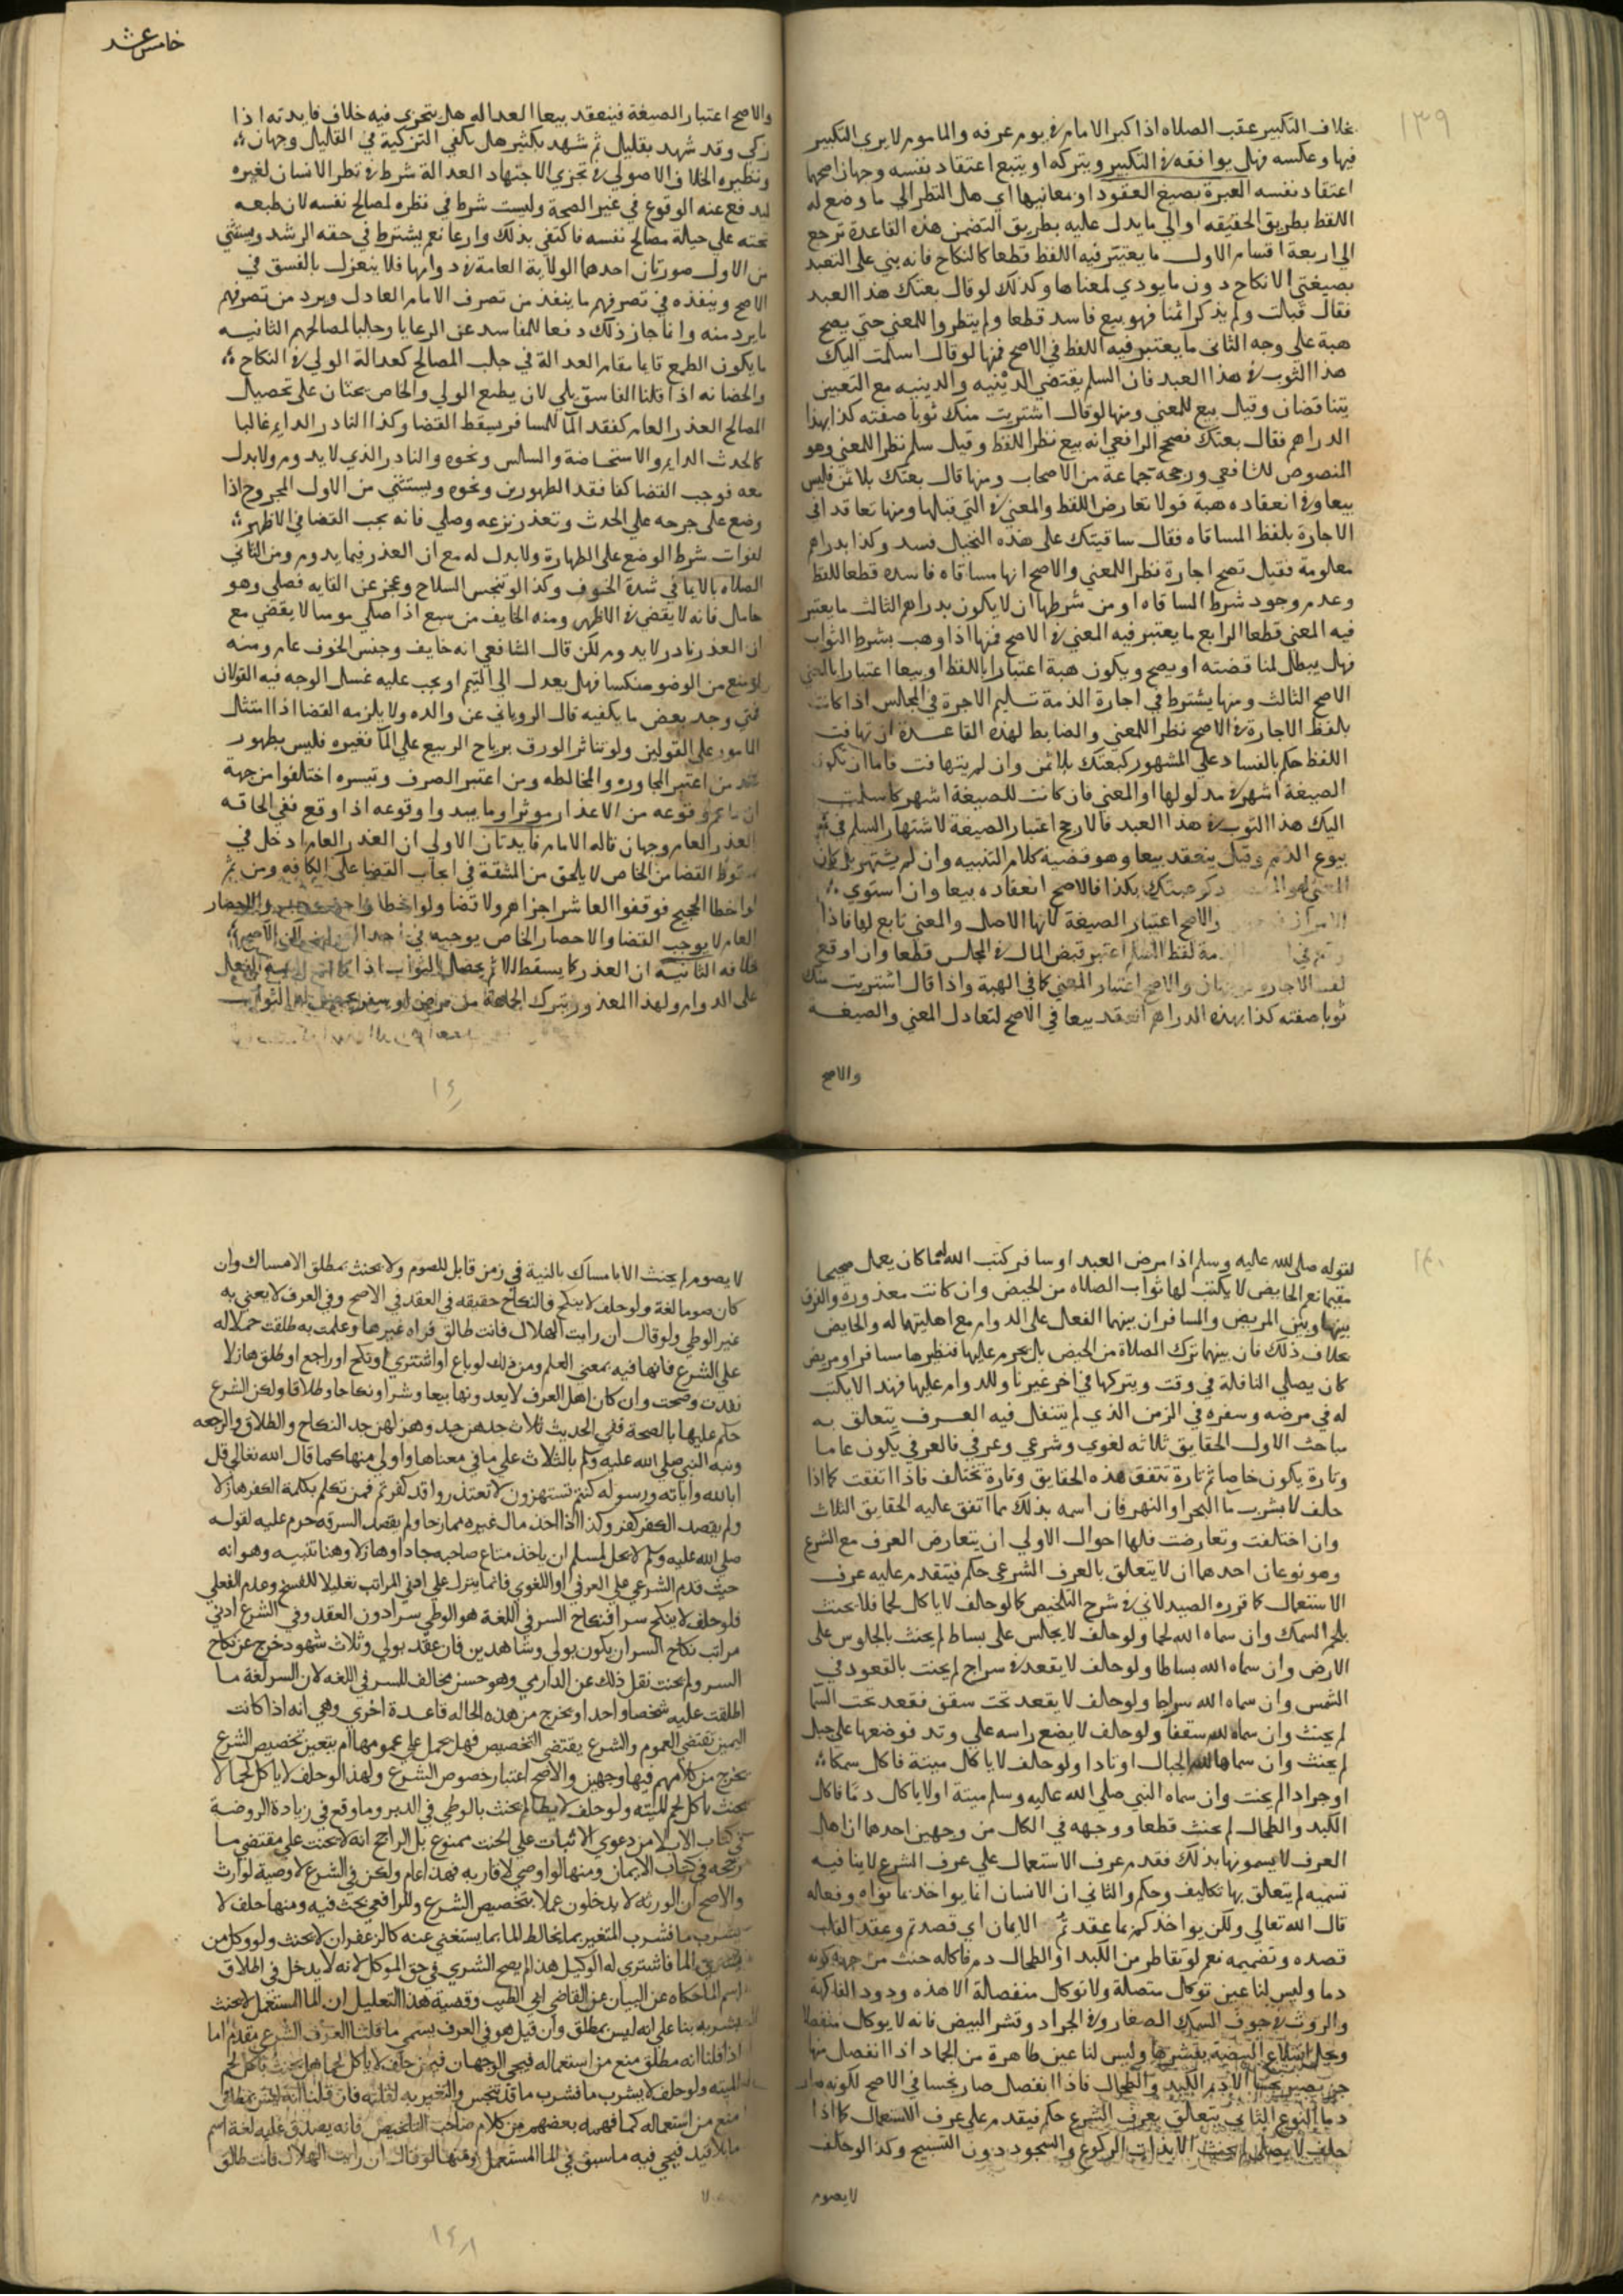 ١٣٩
بخلاف التكبير عقب الصلاه اذا كبر الامام في يوم عرفه والماموم لا يري التكبير
فيها وعكسه فهل يوافقه في التكبير ويتركه او يتبع اعتقاد نفسه وجهان اصحهما
اعتقاد نفسه العبرة بصيغ العقود او معانيها اي هل النظر الي ما وضع له
اللفظ بطريق الحقيقه او الي ما يدل عليه بطريق التضمن هذه القاعدة ترجع
الي اربعة اقسام الاول ما يعتبر فيه اللفظ قطعا كالنكاح فانه بني على التعبد
بصيغتي الانكاح دون ما يودي لمعناها وكذلك لو قال بعتك هذا العبد
فقال قبلت ولم يذكر اثمنا فهو بيع فاسد قطعا ولم ينظروا للمعني حتي يصح
هبة علي وجه الثاني ما يعتبر فيه اللفظ في الاصح فمنها لو قال اسلمت اليك
هذا الثوب في هذا العبد فان السلم يقتضي الدينيه والدينيه مع التعيين
يتناقضان وقيل بيع للمعني ومنها لو قال اشتريت منك ثوبا صفته كذا بهذا
الدراهم فقال بعتك فصحح الرافعي انه بيع نظرا للفظ وقيل سلم نظرا للمعني وهو
المنصوص للشافعي ورجحه جماعة من الاصحاب ومنها قال بعتك بلا ثمن فليس
بيعا وفي انعقاده هبة قولا تعارض اللفظ والمعني في التي قبلها ومنها تعاقد افي
الاجارة بلفظ المساقاه فقال ساقيتك على هذه النخيل فسد وكذا بدراهم
معلومة فقيل تصح اجارة نظرا للمعني والاصح انها مساقاه فاسده قطعا للفظ
وعدم وجود شرط المساقاه اومن شرطها ان لا يكون بدراهم الثالث ما يعتبر
فيه المعني قطعا الرابع ما يعتبر فيه المعني في الاصح فمنها اذا وهب بشرط الثواب
فهل يبطل لمناقضته او يصح ويكون هبة اعتبارا باللفظ او بيعا اعتبارا بالمعني
الاصح الثالث ومنها يشترط في اجارة الذمة تسليم الاجرة في المجلس اذا كانت
بلفظ الاجارة في الاصح نظرا للمعني والضابط لهذه القاعدة ان تهافت
اللفظ حكم بالفساد علي المشهور كبعتك بلا ثمن وان لم يتهافت فاما ان تكون
الصيغة اشهر في مدلولها او المعني فان كانت للصيغة اشهر كاسلمت
اليك هذا الثوب في هذا العبد فالارجح اعتبار الصيغة لاشتهار السلم في
بيوع الذمم وقيل ينعقد بيعا وهو قضية كلام التنبيه وان لم يشتهر بل كان
المعني هو بكذا فالاصح انعقاده بيعا وان استوي
الامران والاصح اعتبار الصيغة لانها الاصل والمعني تابع لها فاذا
لفظ السلم اعتبر قبض المال في المجلس قطعا وان اوقع
لفظ الاجاره وجهان والاصح اعتبار المعني كما في الهبة واذا قال اشتريت منك
ثوبا صفته كذا بهذه الدراهم انعقد بيعا في الاصح لتعادل المعني والصيغه
والاصح
خامس عشر
والاصح اعتبار الصيغة فينعقد بيعا العداله هل تتجزي فيه خلاف فايدته اذا
زكي وقد شهد بقليل ثم شهد بكثير هل يكفي التزكية في القليل وجهان
ونظيره الخلاف الاصولي في تجزي الاجتهاد العدالة شرط في نظر الانسان لغيره
ليدفع عنه الوقوع في غير الصحة وليست شرط في نظره لمصالح نفسه لان طبعه
يحثه علي حيالة مصالح نفسه فاكتفي بذلك وازعا نعم يشترط في حقه الرشد ويستثني
من الاول صورتان احدهما الولاية العامة في دوامها فلا ينعزل بالفسق في
الاصح وينفذه في تصرفهم ما ينفذ من تصرف الامام العادل ويرد من تصرفهم
ما يرد منه وانما جاز ذلك دفعا للمفاسد عن الرعايا وجلبا لمصالحهم الثانيه
ما يكون الطبع قايما مقام العدالة في جلب المصالح كعدالة الولي في النكاح
والحضانه اذا قلنا الفاسق يلي لان طبع الولي والخاص يحثان على تحصيل
المصالح العذر العام كفقد الما للمسافر يسقط القضا وكذا النادر الدايم غالبا
كالحدث الدايم والاستحاضة والسلس ونحوه والنادر الذي لا يدوم ولا بدل
معه فوجب القضا كفاقد الطهورين ونحوه ويستثني من الاول المجروح اذا
وضع على جرحه علي الحدث وتعذر نزعه وصلي فانه يجب القضا في الاظهر
لفوات شرط الوضع على الطهارة ولا بدل له مع ان العذر فيما يدوم ومن الثاني
الصلاه بالايما في شدة الخوف وكذا لو تنجس السلاح وعجز عن القايه فصلي وهو
حامل فانه لا يقضي في الاظهر ومنه الخايف من سبع اذا صلي موميا لا يقضي مع
ان العذر نادر لا يدوم لكن قال الشافعي انه خايف وجنس الخوف عام ومنه
لو منع من الوضو منكسا فهل يعدل الي التيمم او يجب عليه غسل الوجه فيه القولان
فيمن وجد بعض ما يكفيه قال الروياني عن والده ولا يلزمه القضا اذا امتثل
المامور على القولين ولو تناثر الورق برياح الربيع علي الما فغيره فليس بطهور
عند من اعتبر المجاوره والمخالطه ومن اعتبر الصرف وتيسره اختلفوا من جهة
ان ما عم وقوعه من الاعذار موثرا وما يبدوا وقوعه اذا وقع ففي الحاقه
العذر العام وجهان قاله الامام فايدتان الاولي ان العذر العام ادخل في
سقوط القضا من الخاص لا يلحق من المشقة في ايجاب القضا على الكافه ومن ثم
لو اخطا الحجيج فوقفوا العاشر اجزاهم ولا قضا ولو اخطا والاحصار
العام لا يوجب القضا والاحصار الخاص يوجبه في احد الاصح
خلافه الثانية ان العذر كما يسقط الاثم يحصل الثواب اذا الفعل
على الدوام ولهذا المعذور بترك الجماعة من مرض او سفر الثواب
١٤٠
لقوله صلى الله عليه وسلم اذا مرض العبد او سافر كتب الله له ما كان يعمل صحيحا
مقيما نعم الحايض لا يكتب لها ثواب الصلاه من الحيض وان كانت معذورة والفرق
بينها وبين المريض والمسافر ان بينهما الفعل على الدوام مع اهليتهما له والحايض
بخلاف ذلك فان بينهما ترك الصلاة من الحيض بل يحرم عليها فنظيرها مسافر او مريض
كان يصلي النافلة في وقت ويتركها في اخر غير ناو للدوام عليها فهذا لا يكتب
له في مرضه وسفره في الزمن الذي لم يتنفل فيه العرف يتعلق به
مباحث الاول الحقايق ثلاثه لغوي وشرعي وعرفي فالعرفي يكون عاما
وتارة يكون خاصا ثم تارة تتفق هذه الحقايق وتارة تختلف فاذا اتفقت كما اذا
حلف لا يشرب ما البحر او النهر فان اسمه بذلك مما اتفق عليه الحقايق الثلاث
وان اختلفت وتعارضت فلها احوال الاولي ان يتعارض العرف مع الشرع
وهو نوعان احدهما ان لا يتعلق بالعرف الشرعي حكم فيتقدم عليه عرف
الاستعمال كما قرره الصيدلاني في شرح التلخيص كما لو حالف لا ياكل لحما فلا يحنث
بلحم السمك وان سماه الله لحما ولو حالف لا يجلس على بساط لم يحنث بالجلوس على
الارض وان سماه الله بساطا ولو حالف لا يقعد في سراج لم يحنث بالقعود في
الشمس وان سماه الله سراجا ولو حالف لا يقعد تحت سقف فقعد تحت السما
لم يحنث وان سماه الله سقفا ولو حالف لا يضع راسه علي وتد فوضعها على جبل
لم يحنث وان سماها الله الجبال اوتادا ولو حالف لا ياكل ميتة فاكل سمكا
او جرادا لم يحنث وان سماه النبي صلي الله عليه وسلم ميتة اولا ياكل دما فاكل
الكبد والطحال لم يحنث قطعا ووجهه في الكل من وجهين احدهما ان اهل
العرف لا يسمونها بذلك فقدم عرف الاستعمال علي عرف الشرع لاينا فيه
تسميه لم يتعلق بها تكليف وحكم والثاني ان الانسان انما يواخذ بما نواه وفعاله
قال الله تعالي ولكن يواخذكم بما عقدتم الايمان اي قصدتم وعقد القلب
قصده وتصميمه نعم لو تقاطر من الكبد او الطحال دم فاكله حنث من جهة كونه
دما وليس لنا عين توكل متصلة ولا توكل منفصلة الا هذه ودود الفاكهة
والروث في جوف السمك الصغار وفي الجراد وقشر البيض فانه لا يوكل منفصلا
ويحل ابتلاع البيضة بقشرها وليس لنا عين طاهرة من الجماد اذا انفصل منها
جزء يصير نجسا الا دم الكبد والطحال فاذا انفصل صار نجسا في الاصح لكونه صار
دما النوع الثاني يتعلق بعرف الشرع حكم فيقدم على عرف الاستعمال كما اذا
حلف لا يصلي لم يحنث الا بذات الركوع والسجود دون التسبيح وكذا لو حالف
لايصوم
لا يصوم لم يحنث الا بامساك بالنية في زمن قابل للصوم ولا يحنث بمطلق الامساك وان
كان صوما لغة ولو حلف لا ينكح والنكاح حقيقه في العقد في الاصح وفي العرف لا يعني به
غير الوطي ولو قال ان رايت الهلال فانت طالق فراه غيرها وعلمت به طلقت حملا له
علي الشرع فانها فيه بمعني العلم ومن ذلك لو باع او اشتري او نكح او راجع او طلق هازلا
نفدت وصحت وان كان اهل العرف لا يعدونها بيعا وشرا ونكاحا وطلاقا ولكن الشرع
حكم عليها بالصحة ففي الحديث ثلاث جدهن جد وهزلهن جد النكاح والطلاق والرجعه
ونبه النبي صلى الله عليه وسلم بالثلاث علي ما في معناها واولي منها كما قال الله تعالي قل
ابالله واياته ورسوله كنتم تستهزون لا تعتذروا قد كفرتم فمن تكلم بكلمة الكفر هازلا
ولم يقصد الكفر كفر وكذا اذا اخذ مال غيره مازحا ولم يقصد السرقه حرم عليه لقوله
صلي الله عليه وسلم لا يحل لمسلم ان ياخذ متاع صاحبه جادا او هازلا وهنا تنبيه وهو انه
حيث قدم الشرعي علي العرفي او اللغوي فانما ينزل علي ادني المراتب تغليلا للفسخ وعدم الفعلي
فلو حلف لا ينكح سرا فنكاح السر في اللغة هو الوطي سرا دون العقد وفي الشرع ادني
مراتب نكاح السر ان يكون بولي وشاهدين فان عقد بولي وثلاث شهود خرج عن نكاح
السر ولم يحنث نقل ذلك عن الدارمي وهو حسن مخالف للسر في اللغه لان السر لغة ما
اطلقت عليه شخصا واحدا ويخرج من هذه الحاله قاعدة اخري وهي انه اذا كانت
اليمين تقتضي العموم والشرع يقتضي التخصيص فهل يحمل علي عمومها ام يتعين تخصيص الشرع
يخرج من كلامهم فيها وجهين والاصح اعتبار خصوص الشرع ولهذا لو حلف لا ياكل لحما لا
يحنث باكل لحم الميته ولو حلف لا يطا لم يحنث بالوطي في الدبر وما وقع في زيادة الروضة
في كتاب الايلا من دعوي الاثبات علي الحنث ممنوع بل الراجح انه لا يحنث علي مقتضي ما
رجحه في كتاب الايمان ومنها لو اوصي لاقاربه فهذا عام ولكن في الشرع لا وصية لوارث
والاصح ان الورثه لا يدخلون عملا بتخصيص الشرع وللرافعي بحث فيه ومنها حلف لا
يشرب ما فشرب المتغير بما يخالط الما بما يستغني عنه كالزعفران لا يحنث ولو وكل من
يشتري الما فاشتري له الوكيل هذا لم يصح الشري في حق الموكل لانه لا يدخل في اطلاق
اسم الما حكاه عن البيان عن القاضي ابي الطيب وقضية هذا التعليل ان الما المستعمل لا يحنث
بشربه بنا علي انه ليس بمطلق وان قيل هو في العرف يسمي ما قلنا العرف الشرع مقدم اما
اذا قلنا انه مطلق منع من استعماله فيجي الوجهان فيمن حلف لا ياكل لحما هل يحنث باكل لحم
الميته ولو حلف لا يشرب ما فشرب ما قد تنجس والتغير به لقلته فان قلنا انه ليس بمطلق
منع من استعماله كما فهمه بعضهم من كلام صاحب التلخيص فانه يصدق عليه لغة اسم
ما بلا قيد فيجي فيه ما سبق في الما المستعمل ومنها لو قال ان رايت الهلال فانت طالق
١٤١